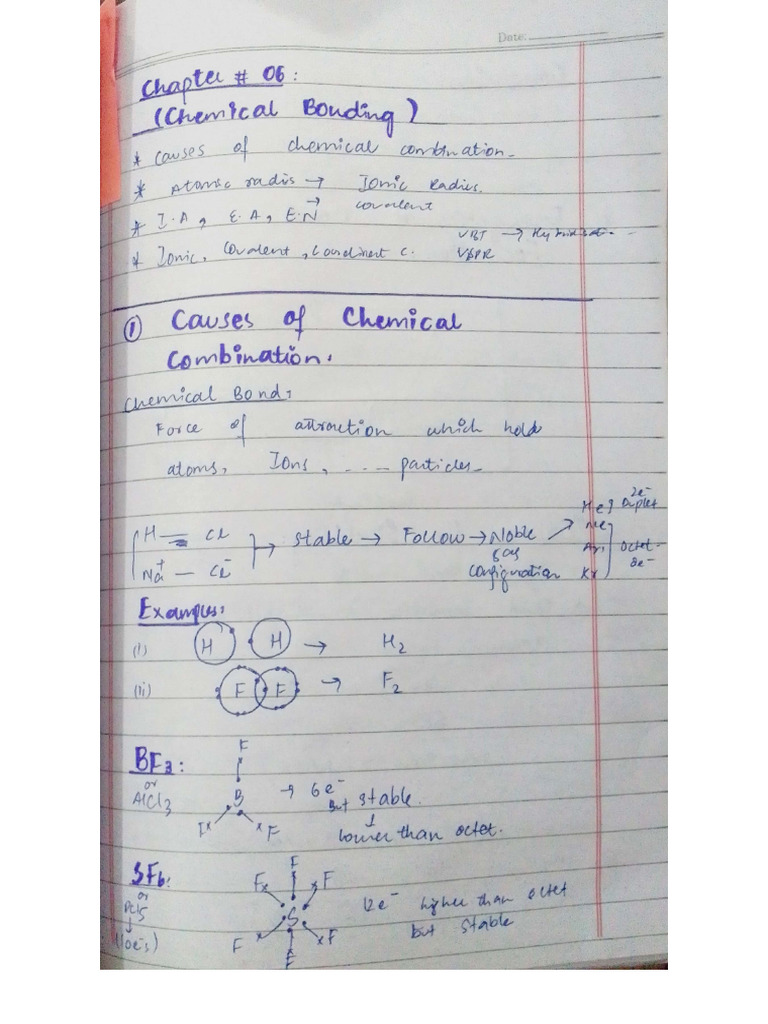 Date:
Chapter # 06:
(Chemical Bonding)
* Causes of chemical combination.
* Atomic radis → Ionic Radius.
covalent
* I.A, E.A, E.N →
VBT → Hy
* Ionic, Covalent, c.
① Causes of Chemical
Combination.
Chemical Bond:
Force of attraction which hold
atoms, Ions, .... particles.
H — Cl
Na⁺ — Cl⁻
→ Stable → Follow → Noble gas configuration
He } 2e⁻ Duplet
Ne
Ar, Octet
Kr 8e⁻
Examples:
(i) H H → H₂
(ii) F F → F₂
BF₃:
or
AlCl₃
F
B → 6e⁻
But stable.
F F
↓
lower than octet.
SF₆:
or
PCl₅
↓
(10e⁻s)
F
F F
S
F F
F
12e⁻ higher than octet
but stable